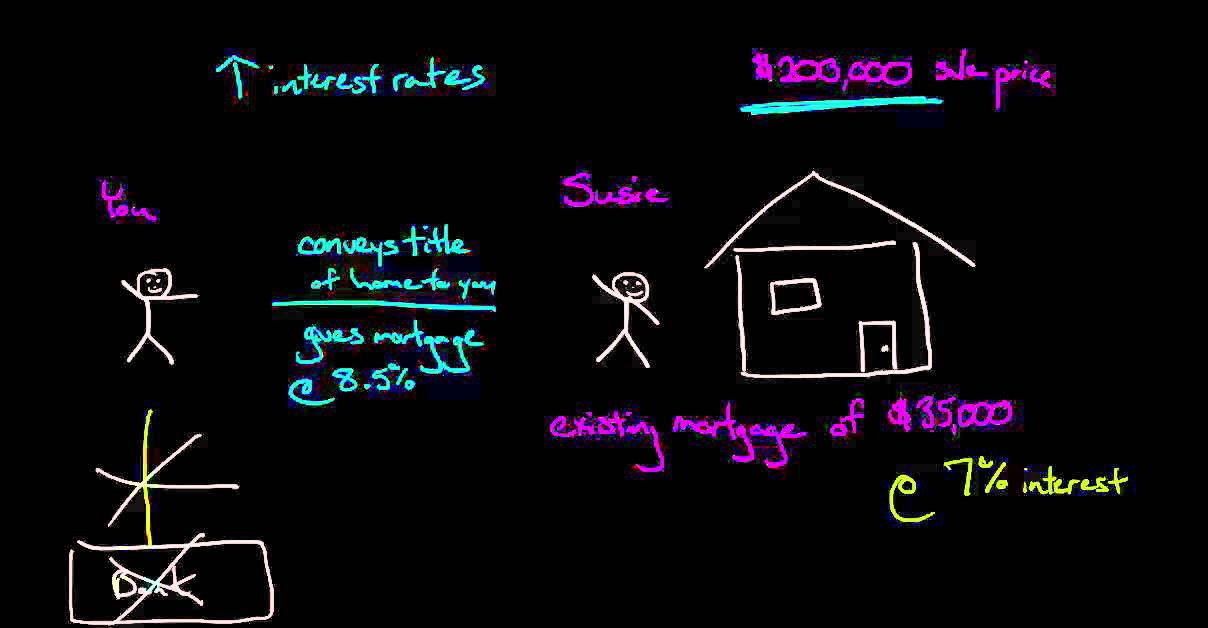 ↑ interest rates
$200,000 sale price
You
Susie
conveys title
of home to you
gives mortgage
@ 8.5%
existing mortgage of $35,000
@ 7% interest
Bank